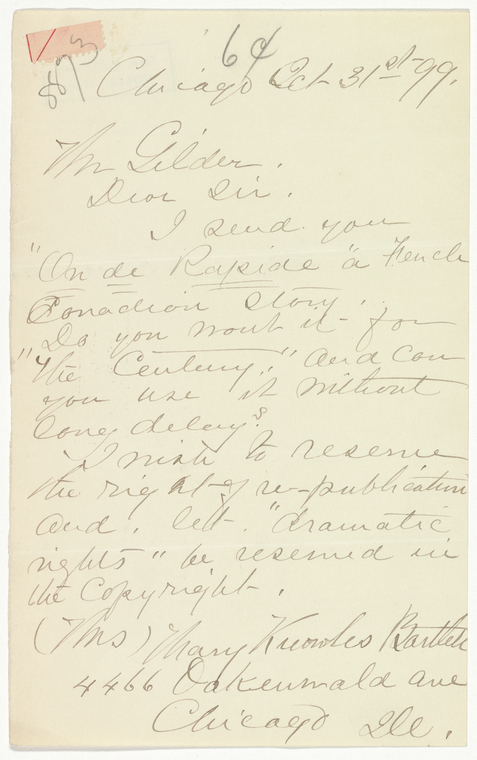 64
873
Chicago Oct 31st-99.
Mr Gilder.
Dear Sir.
I send you
"On de Rapide" a French
Canadian Story.
Do you want it - for
"The Century," and can
you use it without
long delay?
I wish to reserve
the right of re-publication
and, let "dramatic
rights" be reserved in
the Copyright.
(Mrs) Mary Knowles Bartlett
4466 Oakenwald ave
Chicago Ill.